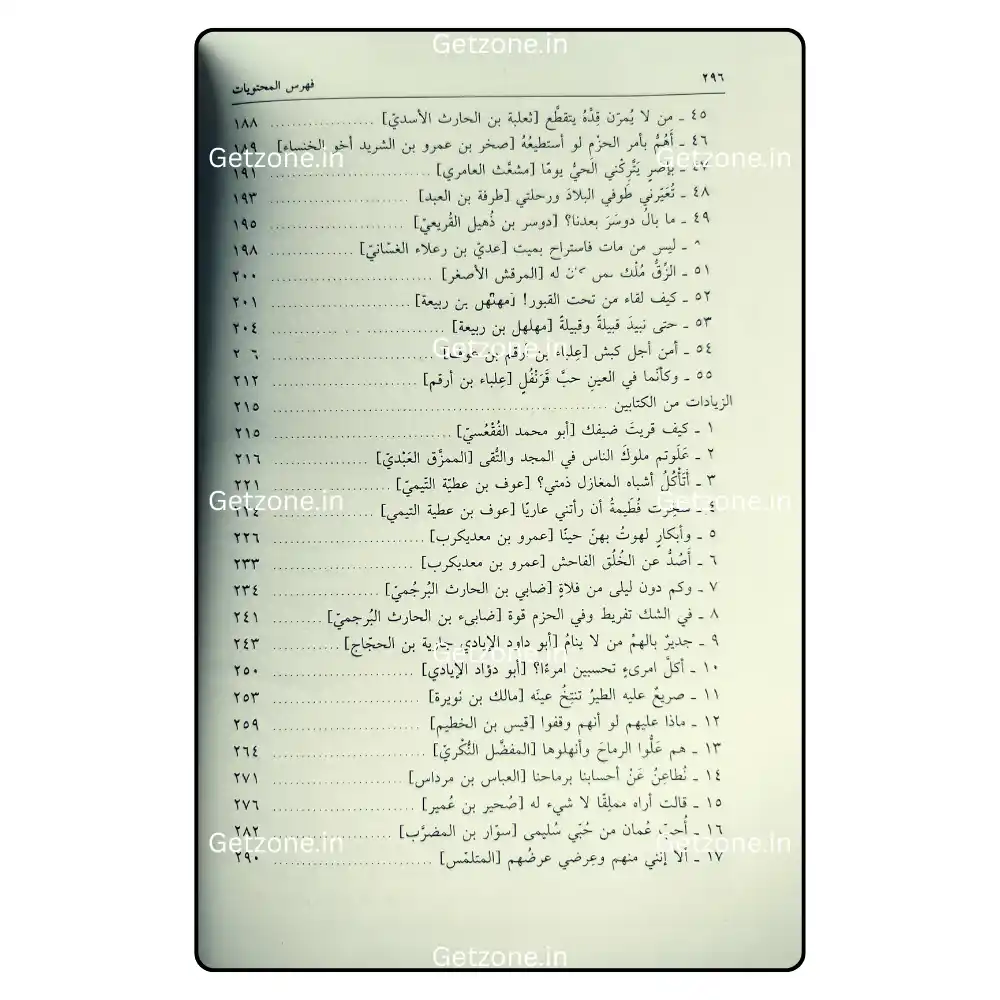 Getzone.in
٢٩٦ فهرس المحتويات
٤٥ ـ من لا يُمرّن قِدْهُ يتقطَّع [ثعلبة بن الحارث الأسديّ] .................. ١٨٨
٤٦ ـ أَهُمُّ بأمر الحزْمِ لو أستطيعُهُ [صخر بن عمرو بن الشريد أخو الخنساء] ١٨٩
Getzone.in Getzone.in
٤٧ ـ بإصْرٍ يَتَّرِكْني الحيُّ يومًا [مشعَّث العامري] .................. ١٩١
٤٨ ـ تُعَيّرني طَوفي البلادَ ورحلتي [طرفة بن العبد] .................. ١٩٣
٤٩ ـ ما بالُ دوسَرَ بعدنا؟ [دوسر بن ذُهيل القُريعيّ] .................. ١٩٥
ـ ليس من مات فاستراح بميت [عديّ بن رعلاء الغسّانيّ] .................. ١٩٨
٥١ ـ الرِّقُّ مُلْك لمن كان له [المرقش الأصغر] .................. ٢٠٠
٥٢ ـ كيف لقاء من تحت القبور! [مهلهل بن ربيعة] .................. ٢٠١
٥٣ ـ حتى نبيدَ قبيلةً وقبيلةً [مهلهل بن ربيعة] .................. ٢٠٤
Getzone.in
٥٤ ـ أمن أجل كبش [عِلباء بن أرقم بن عوف] .................. ٢ ٦
٥٥ ـ وكأنّما في العينِ حبَّ قَرَنْفُلٍ [عِلباء بن أرقم] .................. ٢١٢
الزيادات من الكتابين .................. ٢١٥
١ ـ كيف قريتَ ضيفك [أبو محمد الفُقْعُسيّ] .................. ٢١٥
٢ ـ عَلَوتم ملوكَ الناس في المجد والتُّقى [الممزَّق العَبْديّ] .................. ٢١٦
٣ ـ أَتَأْكُلُ أشباه المغازل ذمتي؟ [عوف بن عطيّة التّيميّ] .................. ٢٢١
Getzone.in Getzone.in
٤ ـ سخِرَت فُطَيمةُ أن رأتني عاريًا [عوف بن عطية التيمي] ..................
٥ ـ وأبكارٍ لهوتُ بهنّ حينًا [عمرو بن معديكرب] .................. ٢٢٦
٦ ـ أَصُدُّ عن الخُلُق الفاحش [عمرو بن معديكرب] .................. ٢٣٣
٧ ـ وكم دون ليلى من فلاةٍ [ضابي بن الحارث البُرجُميّ] .................. ٢٣٤
٨ ـ في الشك تفريط وفي الحزم قوة [ضابىء بن الحارث البُرجميّ] .......... ٢٤١
٩ ـ جديرٌ بالهمُ من لا ينامُ [أبو داود الإيادي جارية بن الحجّاج] ............ ٢٤٣
Getzone.in
١٠ ـ أكلَّ امرىءٍ تحسبين امرءًا؟ [أبو دؤاد الإيادي] .................. ٢٥٠
١١ ـ صريعٌ عليه الطيرُ تنتِخُ عينَه [مالك بن نويرة] .................. ٢٥٣
١٢ ـ ماذا عليهم لو أنهم وقفوا [قيس بن الخطيم] .................. ٢٥٩
١٣ ـ هم عَلُّوا الرماحَ وأنهلوها [المفضَّل النُّكْريّ] .................. ٢٦٤
١٤ ـ نُطاعِنُ عَنْ أحسابنا برماحنا [العباس بن مرداس] .................. ٢٧١
١٥ ـ قالت أراه مملِقًا لا شيء له [صُحير بن عُمير] .................. ٢٧٦
١٦ ـ أُحبّ عُمان من حُبّي سُليمى [سوّار بن المضرَّب] .................. ٢٨٢
Getzone.in Getzone.in
١٧ ـ ألا إنني منهم وعِرضي عرضُهم [المتلمّس] .................. ٢٩٠
Getzone.in